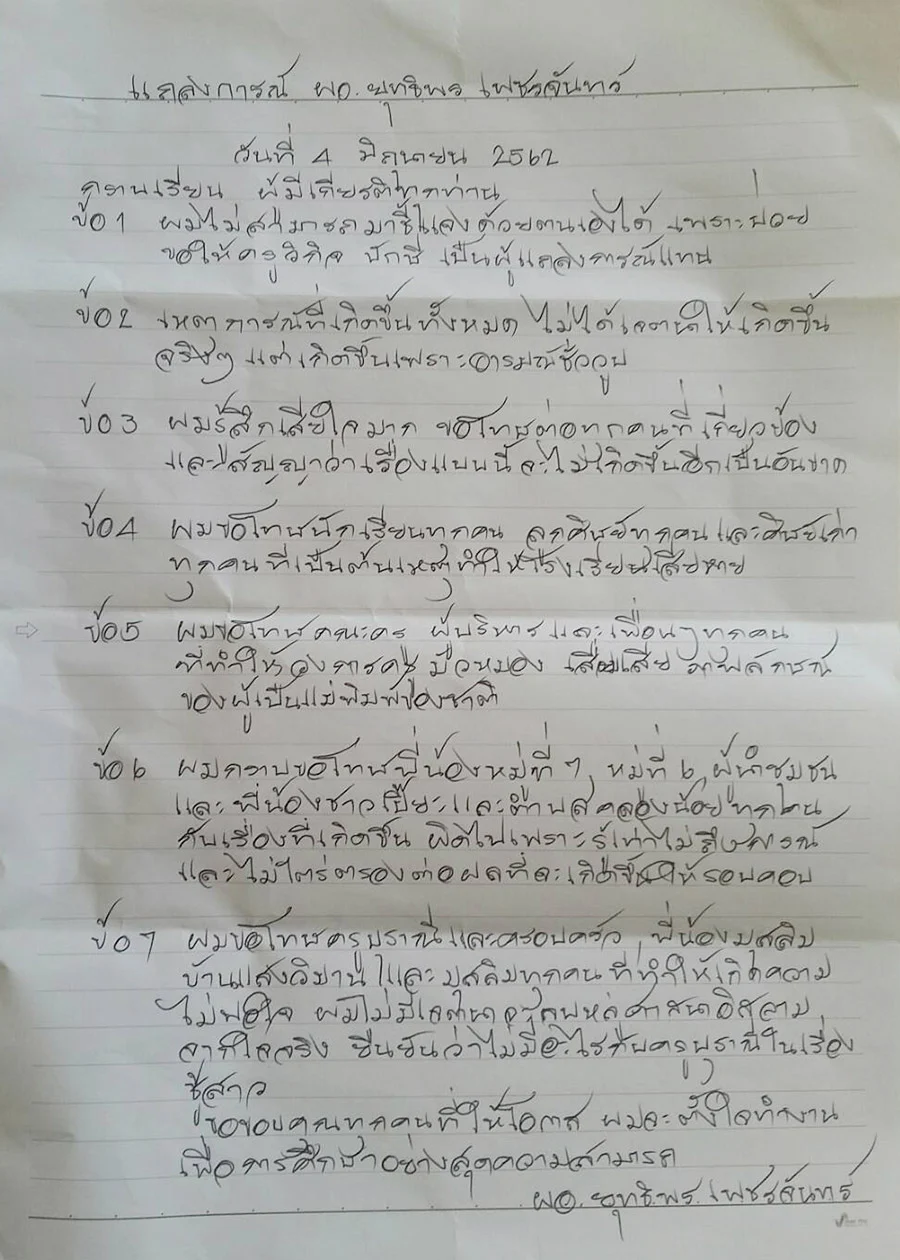 แถลงการณ์ ผอ.ยุทธิพร เพชรจันทร์
วันที่ 4 มิถุนายน 2562
กราบเรียน ผู้มีเกียรติทุกท่าน
ข้อ 1 ผมไม่สามารถมาชี้แจงด้วยตนเองได้ เพราะป่วย
ขอให้ครูวิกิจ บักษี เป็นผู้แถลงการณ์แทน
ข้อ 2 เหตุการณ์ที่เกิดขึ้นทั้งหมด ไม่ได้เจตนาให้เกิดขึ้น
จริงๆ แต่เกิดขึ้นเพราะอารมณ์ชั่ววูบ
ข้อ 3 ผมรู้สึกเสียใจมาก ขอโทษต่อทุกคนที่เกี่ยวข้อง
และสัญญาว่าเรื่องแบบนี้จะไม่เกิดขึ้นอีกเป็นอันขาด
ข้อ 4 ผมขอโทษนักเรียนทุกคน ลูกศิษย์ทุกคนและศิษย์เก่า
ทุกคนที่เป็นต้นเหตุทำให้โรงเรียนเสียหาย
ข้อ 5 ผมขอโทษคณะครู ผู้บริหารและเพื่อนๆทุกคน
ที่ทำให้วงการครู มัวหมอง เสื่อมเสีย ภาพลักษณ์
ของผู้เป็นแม่พิมพ์ของชาติ
ข้อ 6 ผมกราบขอโทษพี่น้องหมู่ที่ 7, หมู่ที่ 6, ผู้นำชุมชน
และ พี่น้องชาวเปี๊ยะและตำบลคลองน้อยทุกคน
กับเรื่องที่เกิดขึ้น ผิดไปเพราะรู้เท่าไม่ถึงการณ์
และไม่ไตร่ตรองต่อผลที่จะเกิดขึ้นให้รอบคอบ
ข้อ 7 ผมขอโทษครูปราณีและครอบครัว, พี่น้องมุสลิม
บ้านแสงวิมาน และมุสลิมทุกคน ที่ทำให้เกิดความ
ไม่พอใจ ผมไม่มีเจตนาจะลบหลู่ศาสนาอิสลาม
จากใจจริง ยืนยันว่าไม่มีอะไรกับครูปราณีในเรื่อง
ชู้สาว
ขอขอบคุณทุกคนที่ให้โอกาส ผมจะตั้งใจทำงาน
เพื่อการศึกษาอย่างสุดความสามารถ
ผอ.ยุทธิพร เพชรจันทร์